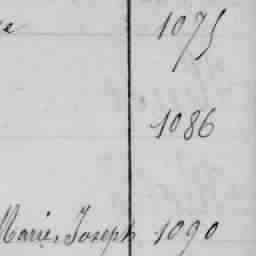 1075
1086
Marie, Joseph 1090